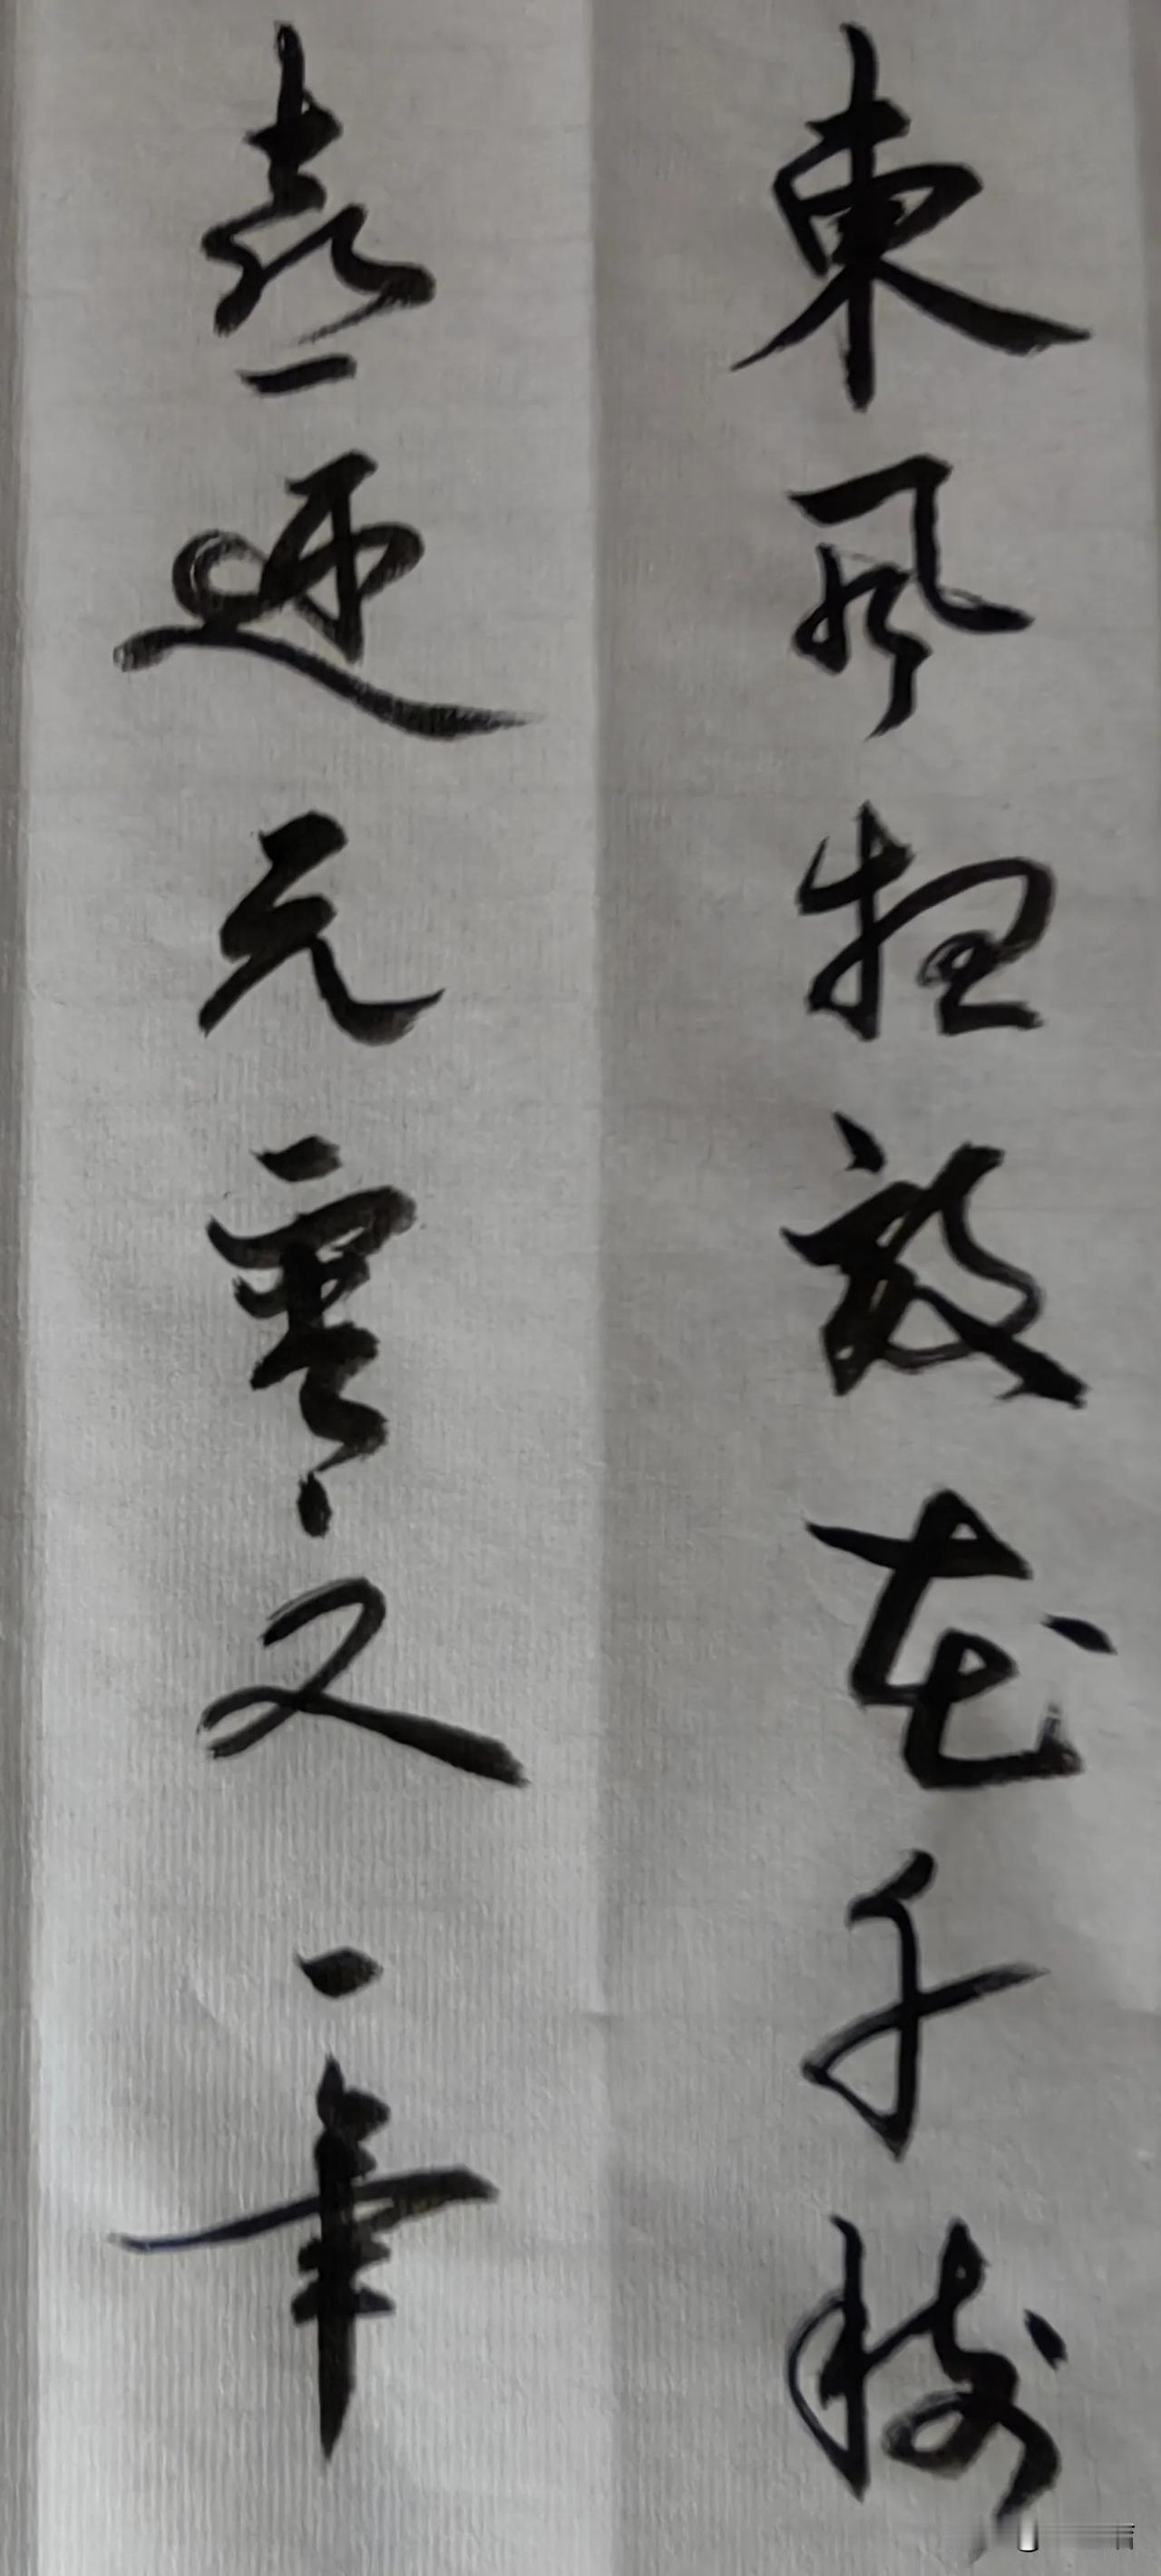 東風放花千樹
喜迎元又一年